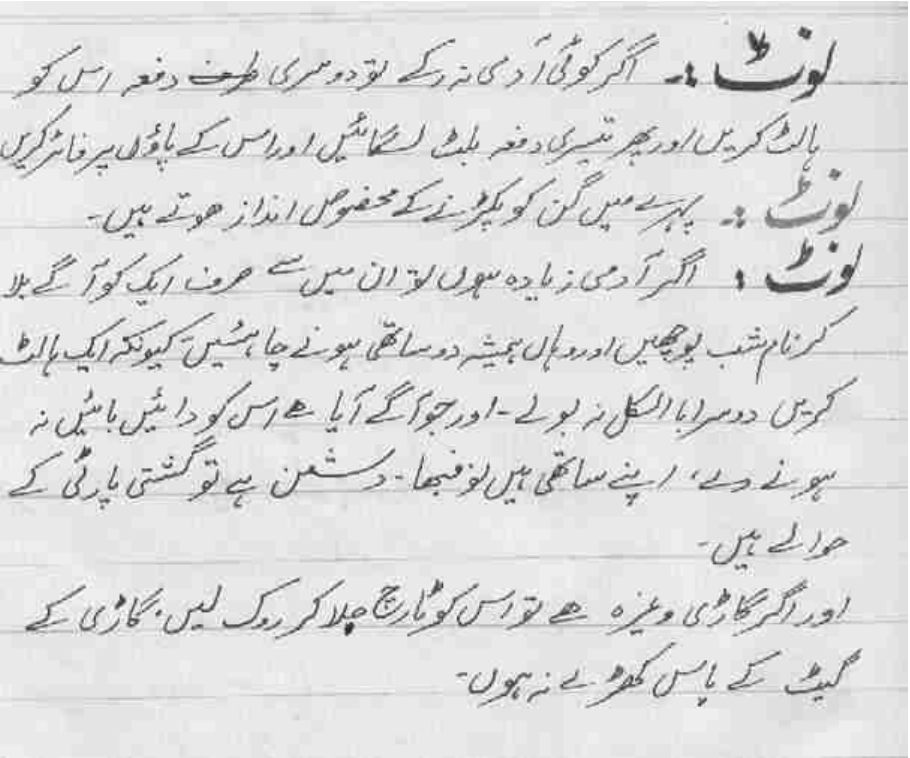 نوٹ :۔ اگر کوئی آدمی نہ رکے تو دوسری طرف دفعہ اس کو
ہالٹ کریں اور پھر تیسری دفعہ بلٹ لگائیں اور اس کے پاؤں پر فائر کریں
نوٹ :۔ پہرے میں گن کو پکڑنے کے مخصوص انداز ھوتے ہیں۔
نوٹ : اگر آدمی زیادہ ہوں تو ان میں سے صرف ایک کو آگے بلا
کر نام شب پوچھیں اور وہاں ہمیشہ دو ساتھی ہونے چاہئیں کیونکہ ایک ہالٹ
کریں دوسرا باالکل نہ بولے۔ اور جو آگے آیا ھے اس کو دائیں بائیں نہ
ہونے دے، اپنے ساتھی ہیں تو فبھا۔ دشمن ہے تو گشتی پارٹی کے
حوالے ہیں۔
اور اگر گاڑی وغیرہ ھے تو اس کو ٹارچ جلا کر روک لیں۔ گاڑی کے
گیٹ کے پاس کھڑے نہ ہوں۔